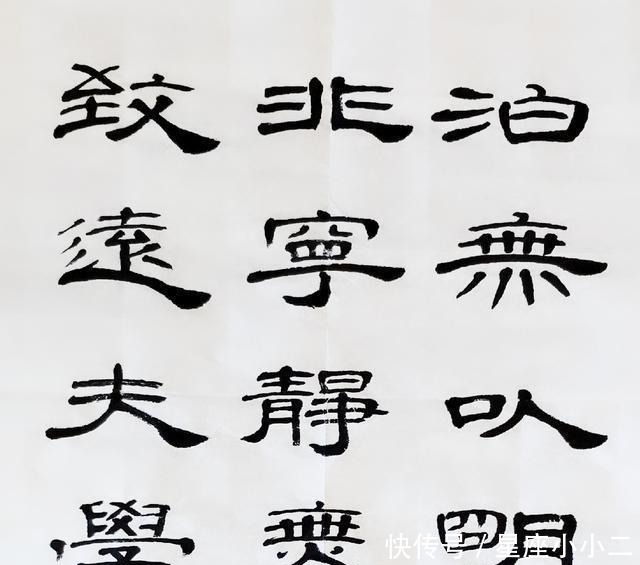 泊無以明
非寧靜無
致遠夫學
快传号 / 星座小小二